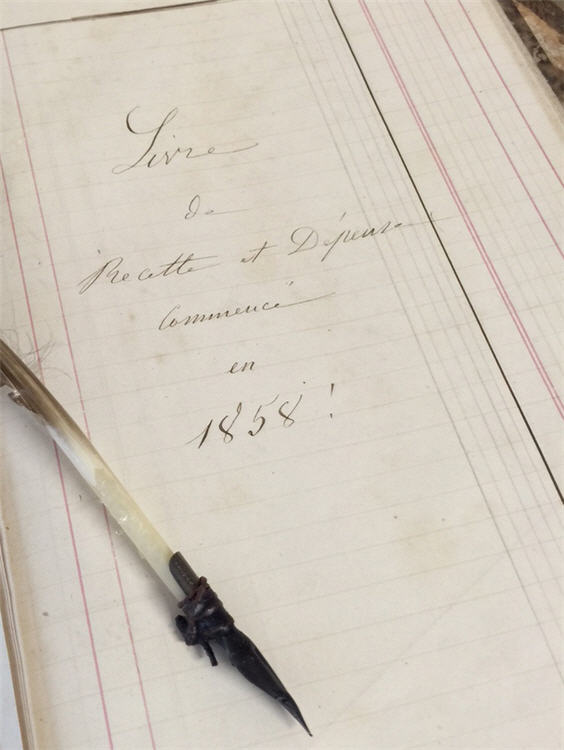 Livre
de
Recette et Dépense
commencé
en
1858 !